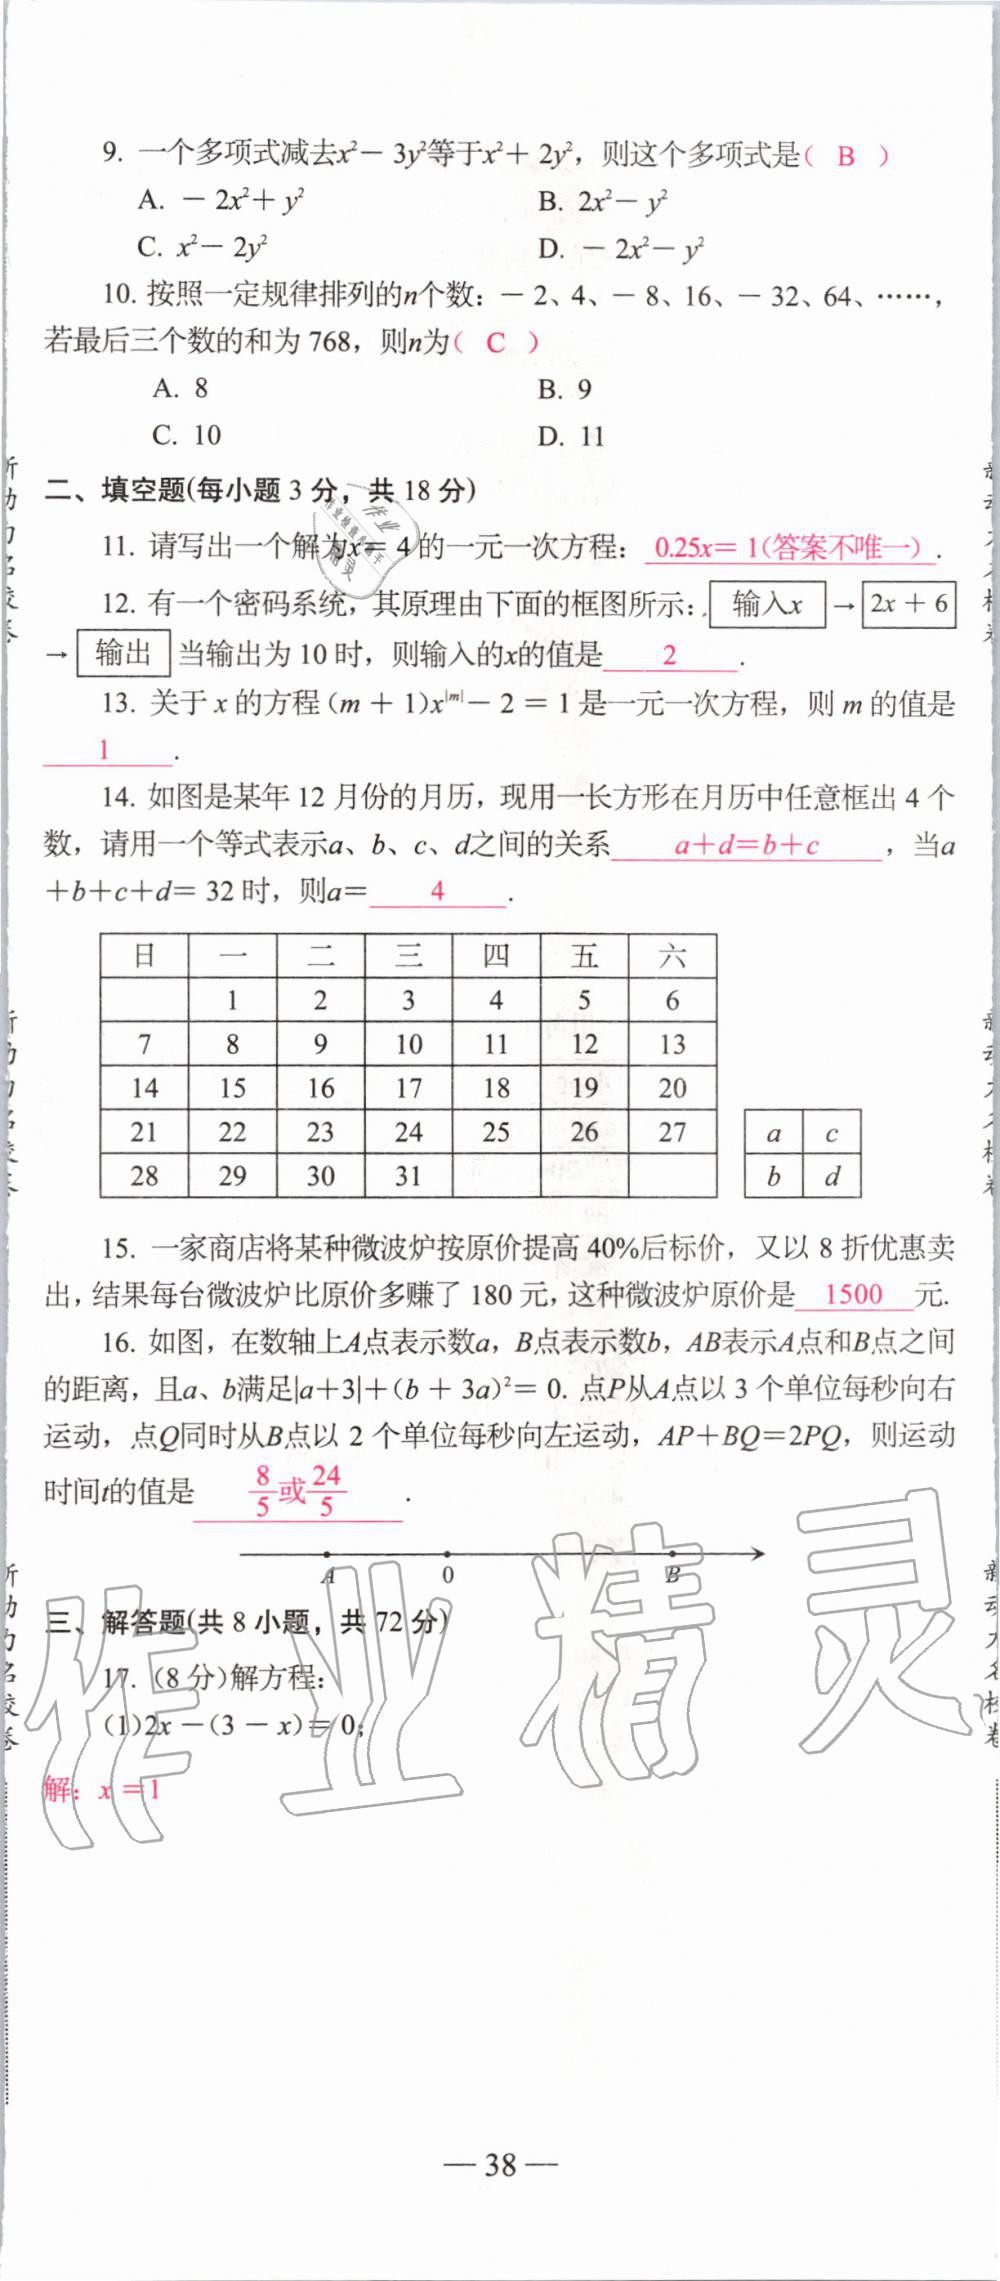 9. 一个多项式减去x²－3y²等于x²＋2y²，则这个多项式是( B )
A. －2x²＋y² B. 2x²－y²
C. x²－2y² D. －2x²－y²
10. 按照一定规律排列的n个数：－2、4、－8、16、－32、64、……，
若最后三个数的和为 768，则n为( C )
A. 8 B. 9
C. 10 D. 11
二、填空题(每小题 3 分，共 18 分)
11. 请写出一个解为x＝4的一元一次方程：0.25x＝1(答案不唯一).
12. 有一个密码系统，其原理由下面的框图所示：输入x → 2x＋6
→ 输出 当输出为 10 时，则输入的x的值是 2 .
13. 关于 x 的方程(m＋1)x|m|－2＝1是一元一次方程，则 m 的值是
1 .
14. 如图是某年 12 月份的月历，现用一长方形在月历中任意框出 4 个
数，请用一个等式表示a、b、c、d之间的关系 a＋d＝b＋c ，当a
＋b＋c＋d＝32 时，则a＝ 4 .
日 一 二 三 四 五 六
1 2 3 4 5 6
7 8 9 10 11 12 13
14 15 16 17 18 19 20
21 22 23 24 25 26 27
28 29 30 31
a c
b d
15. 一家商店将某种微波炉按原价提高 40%后标价，又以 8 折优惠卖
出，结果每台微波炉比原价多赚了 180 元，这种微波炉原价是 1500 元.
16. 如图，在数轴上A点表示数a，B点表示数b，AB表示A点和B点之间
的距离，且a、b满足|a＋3|＋(b＋3a)²＝0. 点P从A点以 3 个单位每秒向右
运动，点Q同时从B点以 2 个单位每秒向左运动，AP＋BQ＝2PQ，则运动
时间t的值是 8/5或24/5 .
A 0 B
三、解答题(共 8 小题，共 72 分)
17. (8 分)解方程：
(1)2x－(3－x)＝0；
解：x＝1
作业精灵
— 38 —